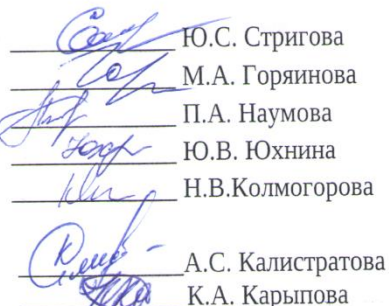 Ю.С. Стригова
М.А. Горяинова
П.А. Наумова
Ю.В. Юхнина
Н.В.Колмогорова
А.С. Калистратова
К.А. Карыпова